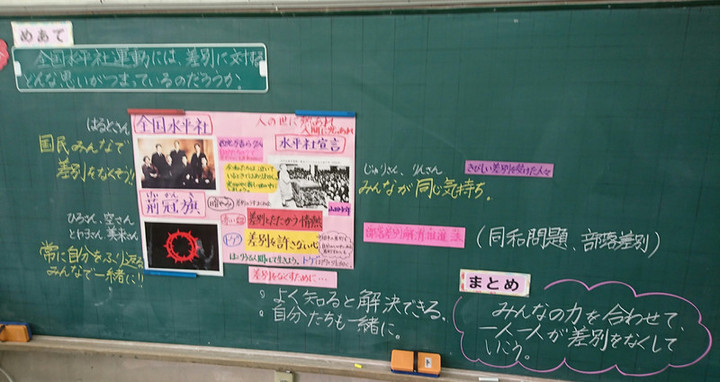 めあて
全国水平社運動には、差別に対する
どんな思いがつまっているのだろうか。
はるとさん
国民みんなで
差別をなくそう!!
全国水平社
人の世に熱あれ
人間に光あれ
水平社宣言
荊冠旗
差別とたたかう情熱
トゲ
差別を許さない心
じゅりさん、りんさん
みんなが同じ気持ち。
きびしい差別を受けた人々
部落差別解消推進法
(同和問題、部落差別)
ひろさん、空さん
常に自分をふり返る
みんなで一緒に!!
差別をなくすために…
。よく知ると解決できる。
。自分たちも一緒に。
まとめ
みんなの力を合わせて、
一人一人が差別をなくして
いこう。